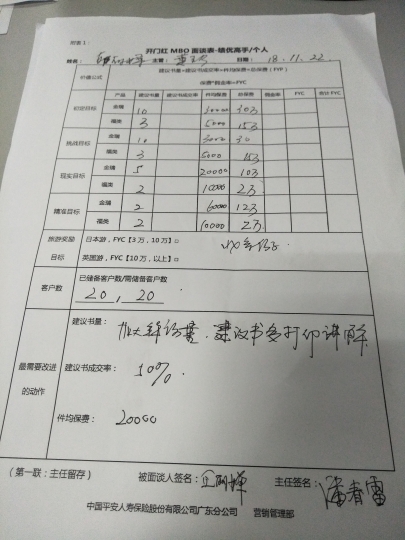 附表1：
开门红MBO面谈表-绩优高手/个人
姓名： 主管： 日期： 18.11.22
价值公式 建议书量×建议书成交率×件均保费=总保费（FYP）
保费*佣金率=FYC
产品 建议书量 建议书成交率 件均保费 总保费 佣金率 FYC 合计FYC
初定目标 金瑞 10 30万
福类 3 5000 15万
挑战目标 金瑞 10 3000 30
福类 3 5000 15万
现实目标 金瑞 5 20000 10万
福类 2 10000 2万
精准目标 金瑞 2 60000 12万
福类 2 10000 2万
旅游奖励 日本游，FYC【3万，10万】□
目标 英国游，FYC【10万，以上】□
客户数 已储备客户数/需储备客户数
20，20
最需要改进的动作
建议书量： 加大拜访量，建议书多打印讲解
建议书成交率： 10%.
件均保费： 20000
（第一联：主任留存） 被面谈人签名： 主任签名： 潘春雷
中国平安人寿保险股份有限公司广东分公司 营销管理部